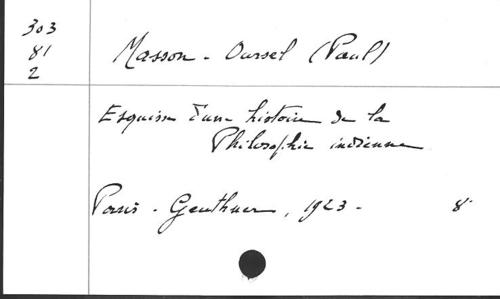 303
81
2
Masson-Oursel (Paul)
Esquisse d'une histoire de la
Philosophie indienne
Paris - Geuthner, 1923 - 8°